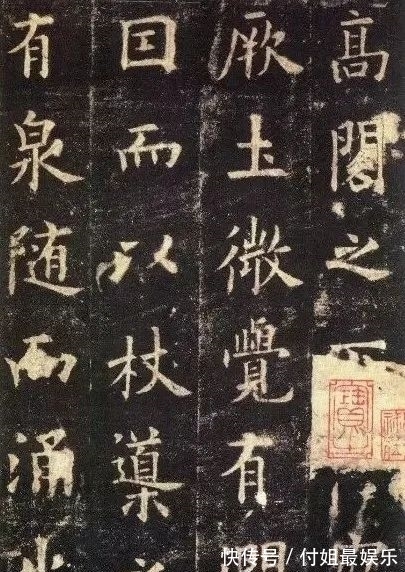 高閣之
厥土微覺有
囙而以杖導
有泉随而涌出
快传号 / 付姐最娱乐